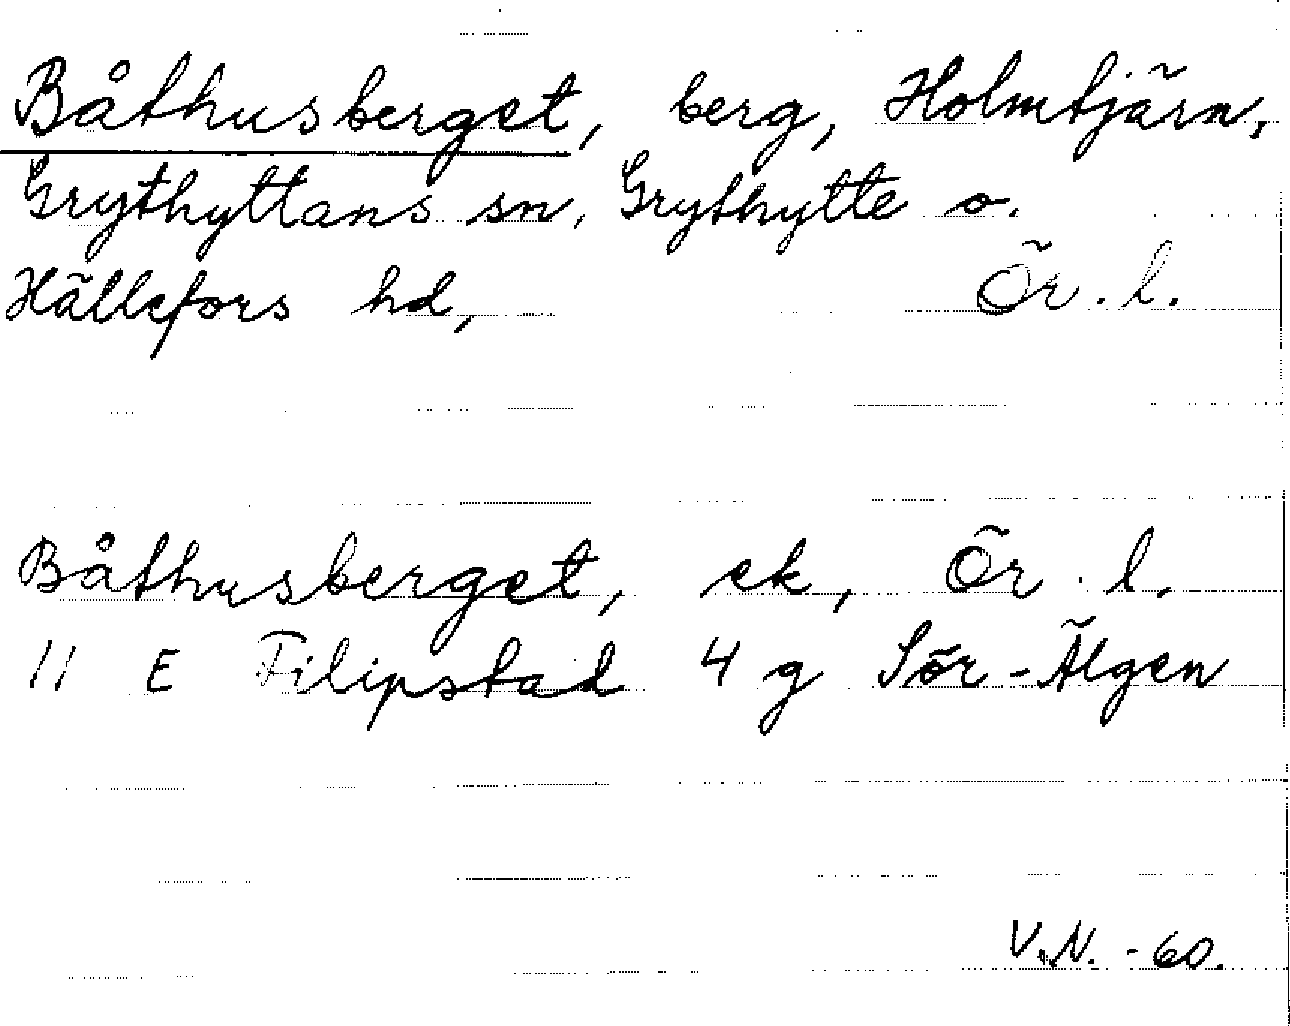 Båthusberget, berg, Holmtjärn,
Grythyttans sn, Grythytte o.
Hällefors hd, Ör. l.
Båthusberget, ek, Ör. l.
11 E Filipstad 4 g Sör-Älgen
V.N. -60.